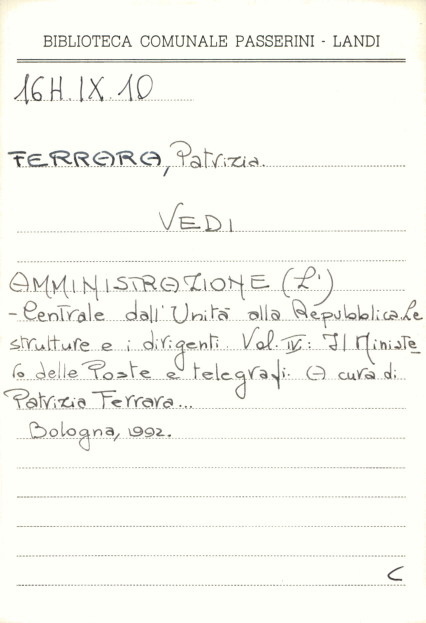 BIBLIOTECA COMUNALE PASSERINI - LANDI
16H.IX.10
FERRARA, Patrizia.
VEDI
AMMINISTRAZIONE (L')
- Centrale dall'Unità alla Repubblica. Le
strutture e i dirigenti. Vol. IV: Il Ministe
ro delle Poste e telegrafi. A cura di
Patrizia Ferrara...
Bologna, 1992.
C